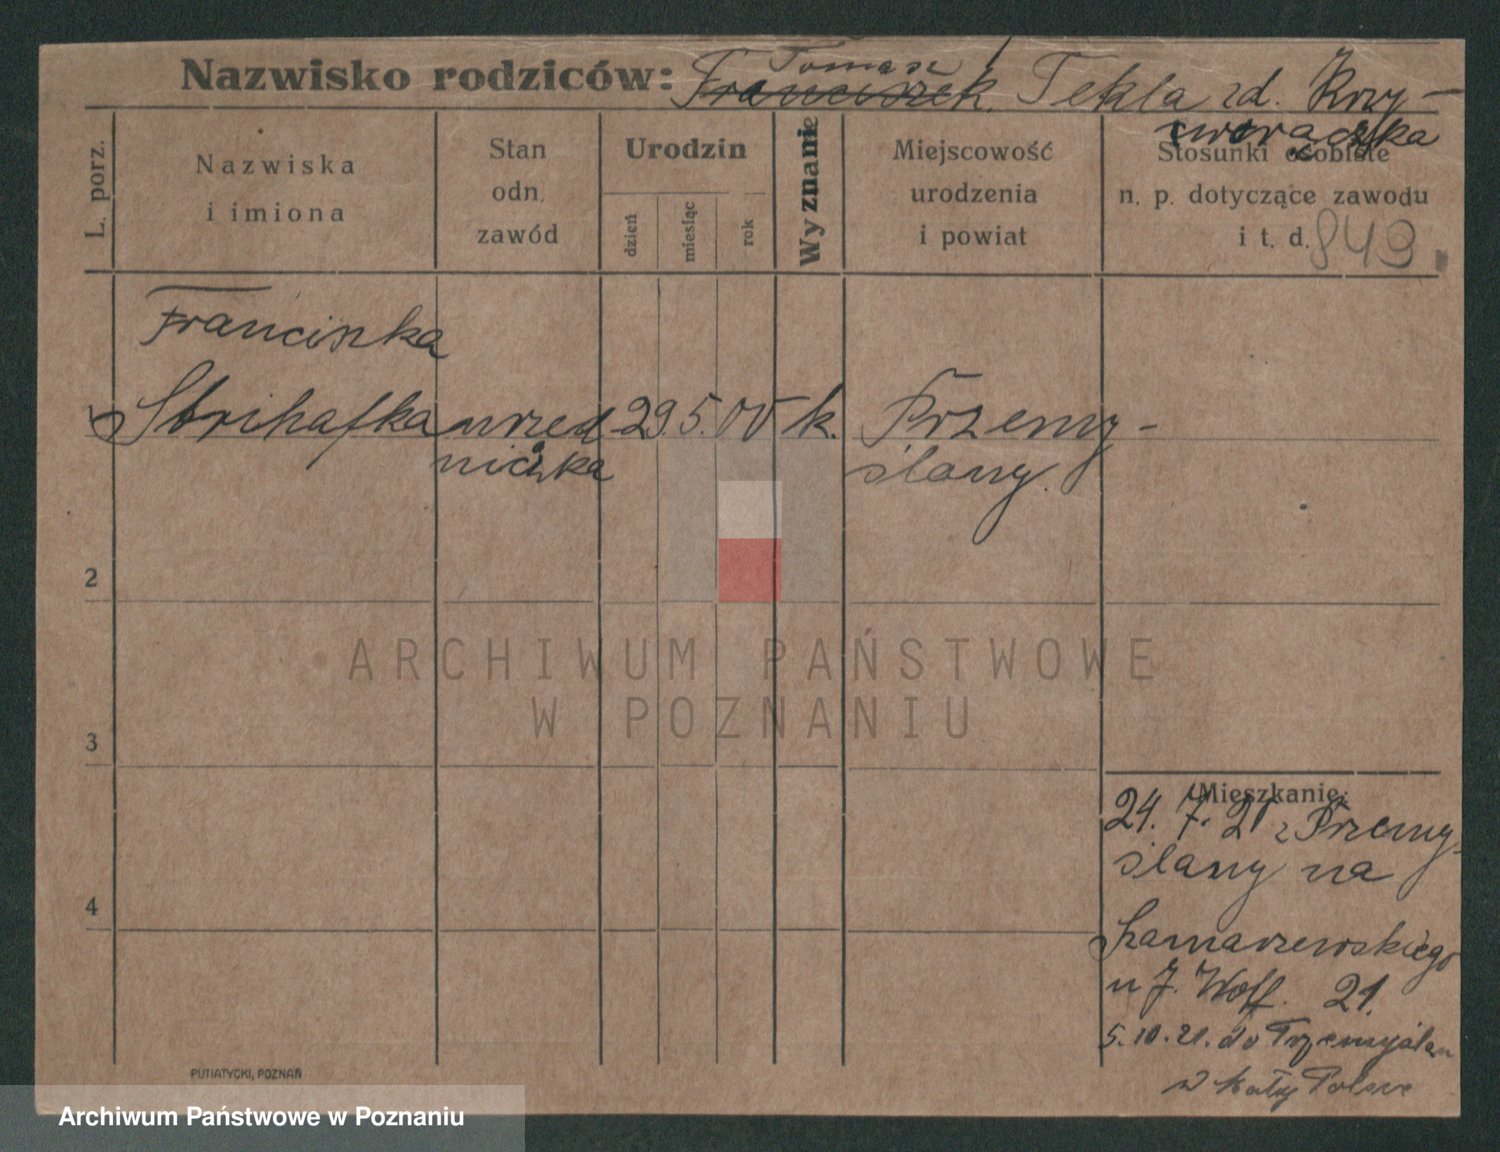 Tomasz
Nazwisko rodziców: Franciszek, Tekla zd. Krzy-
L. porz.
Nazwiska
i imiona
Stan
odn.
zawód
Urodzin
dzień
miesiąc
rok
Wyznanie
Miejscowość
urodzenia
i powiat
Stosunki osobiste
n. p. dotyczące zawodu
i t. d. 849
Franciszka
1 Strihafka urzed 29. 5. 00 k. Przemy-
niczka ślany.
2
3
4
Mieszkanie:
24. 7. 21 z Przemy-
ślany na
u J. Wolf. 21.
5. 10. 21. do Przemyślan
w Małej Polsce
PUTIATYCKI, POZNAŃ
ARCHIWUM PAŃSTWOWE
W POZNANIU
Archiwum Państwowe w Poznaniu